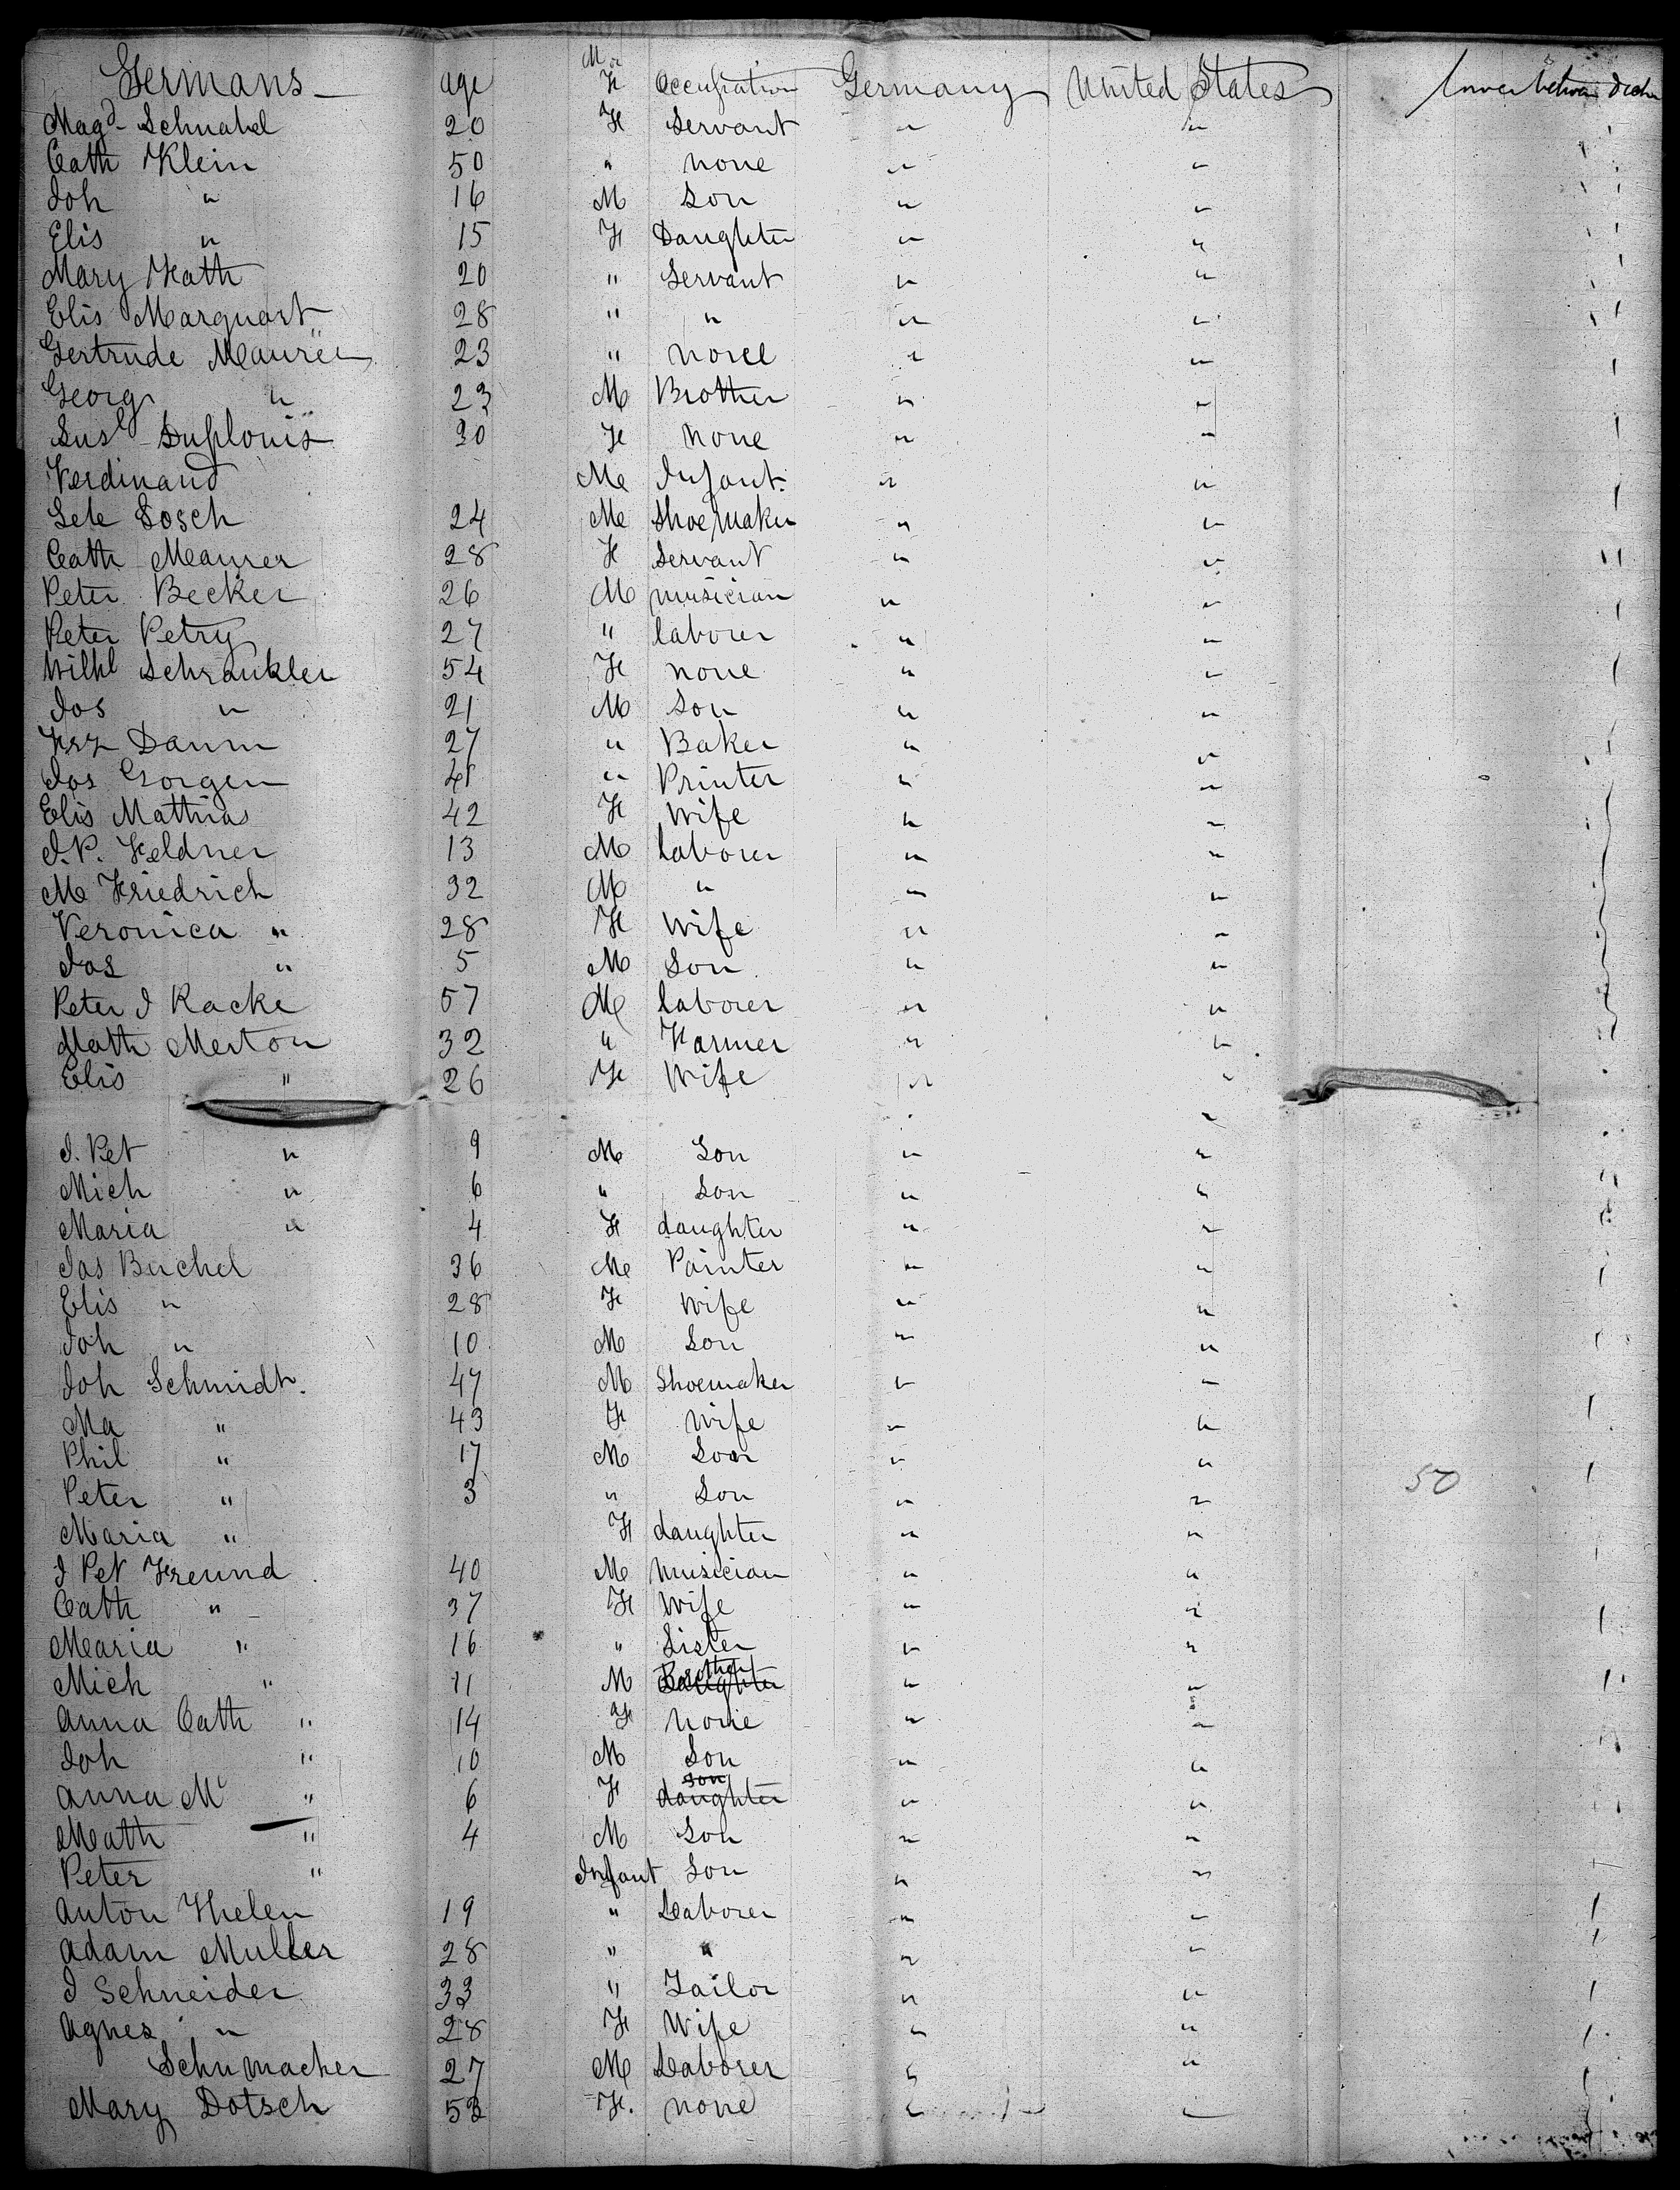 Germans - age M or F Occupation Germany United States Lower between Decks
Magd - Schnabel 20 F Servant " "
Cath Klein 50 " none " "
Joh " 16 M Son " "
Elis " 15 F Daughter " "
Mary Fath 20 " Servant " "
Elis Marquart 28 " " " "
Gertrude Maurer 23 " none " "
Georg " 23 M Brother " "
Susl Duplouis 30 F none " "
Ferdinand M Infant. " "
24 M Shoemaker " "
Cath Maurer 28 F Servant " "
Peter Becker 26 M musician " "
Peter Petry 27 " laborer " "
Wilhl Schrankler 54 F none " "
Jos " 21 M Son " "
Frz Daum 27 " Baker " "
Jos Gorgen 41 " Printer " "
Elis Mathias 42 F Wife " "
J.P. Feldner 13 M laborer " "
M Friedrich 32 M " " "
Veronica " 28 F Wife " "
Jos " 5 M Son " "
Peter J Racke 57 M laborer " "
Math Merton 32 " Farmer " "
Elis " 26 F Wife " "
J. Pet " 9 M Son " "
Mich " 6 " Son " "
Maria " 4 F daughter " "
Jas Buchel 36 M Painter " "
Elis " 28 F Wife " "
Joh " 10 M Son " "
Joh Schmidt. 47 M Shoemaker " "
Ma " 43 F Wife " "
Phil " 17 M Son " "
Peter " 3 " Son " " 50
Maria " F daughter " "
J Pet Freund 40 M Musician " "
Cath " 37 F Wife " "
Maria " 16 " Sister " "
Mich " 11 M Brother Daughter " "
Anna Cath " 14 F none " "
Joh " 10 M Son " "
Anna M " 6 F son daughter " "
Math " 4 M Son " "
Peter " Infant Son " "
Anton Thelen 19 " Laborer " "
Adam Muller 28 " " " "
J Schneider 33 " Tailor " "
Agnes " 28 F Wife " "
Schumacher 27 M Laborer " "
Mary Dotsch 53 F. none " "